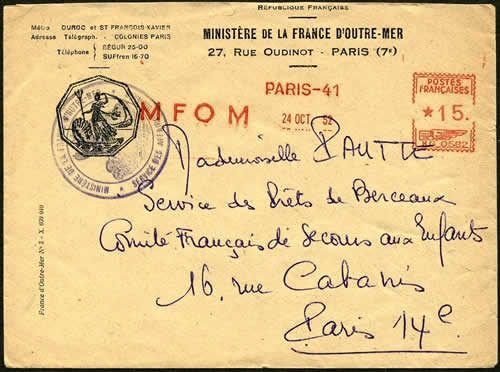 RÉPUBLIQUE FRANÇAISE
Métro DUROC et ST FRANÇOIS-XAVIER
Adresse Télégraph. - COLONIES PARIS
Téléphone { SÉGUR 25-00
SUFfren 16-70
MINISTÈRE DE LA FRANCE D'OUTRE-MER
27, RUE OUDINOT - PARIS (7e)
MFOM
PARIS-41
24 OCT 52
POSTES
FRANÇAISES
*15.
MINISTÈRE DE LA
SERVICE DES
Mademoiselle PAUTTE
Service des Prêts de Berceaux
Comité Français de Secours aux Enfants
16, rue Cabanis
Paris 14e.
France d'Outre-Mer No 2 - X